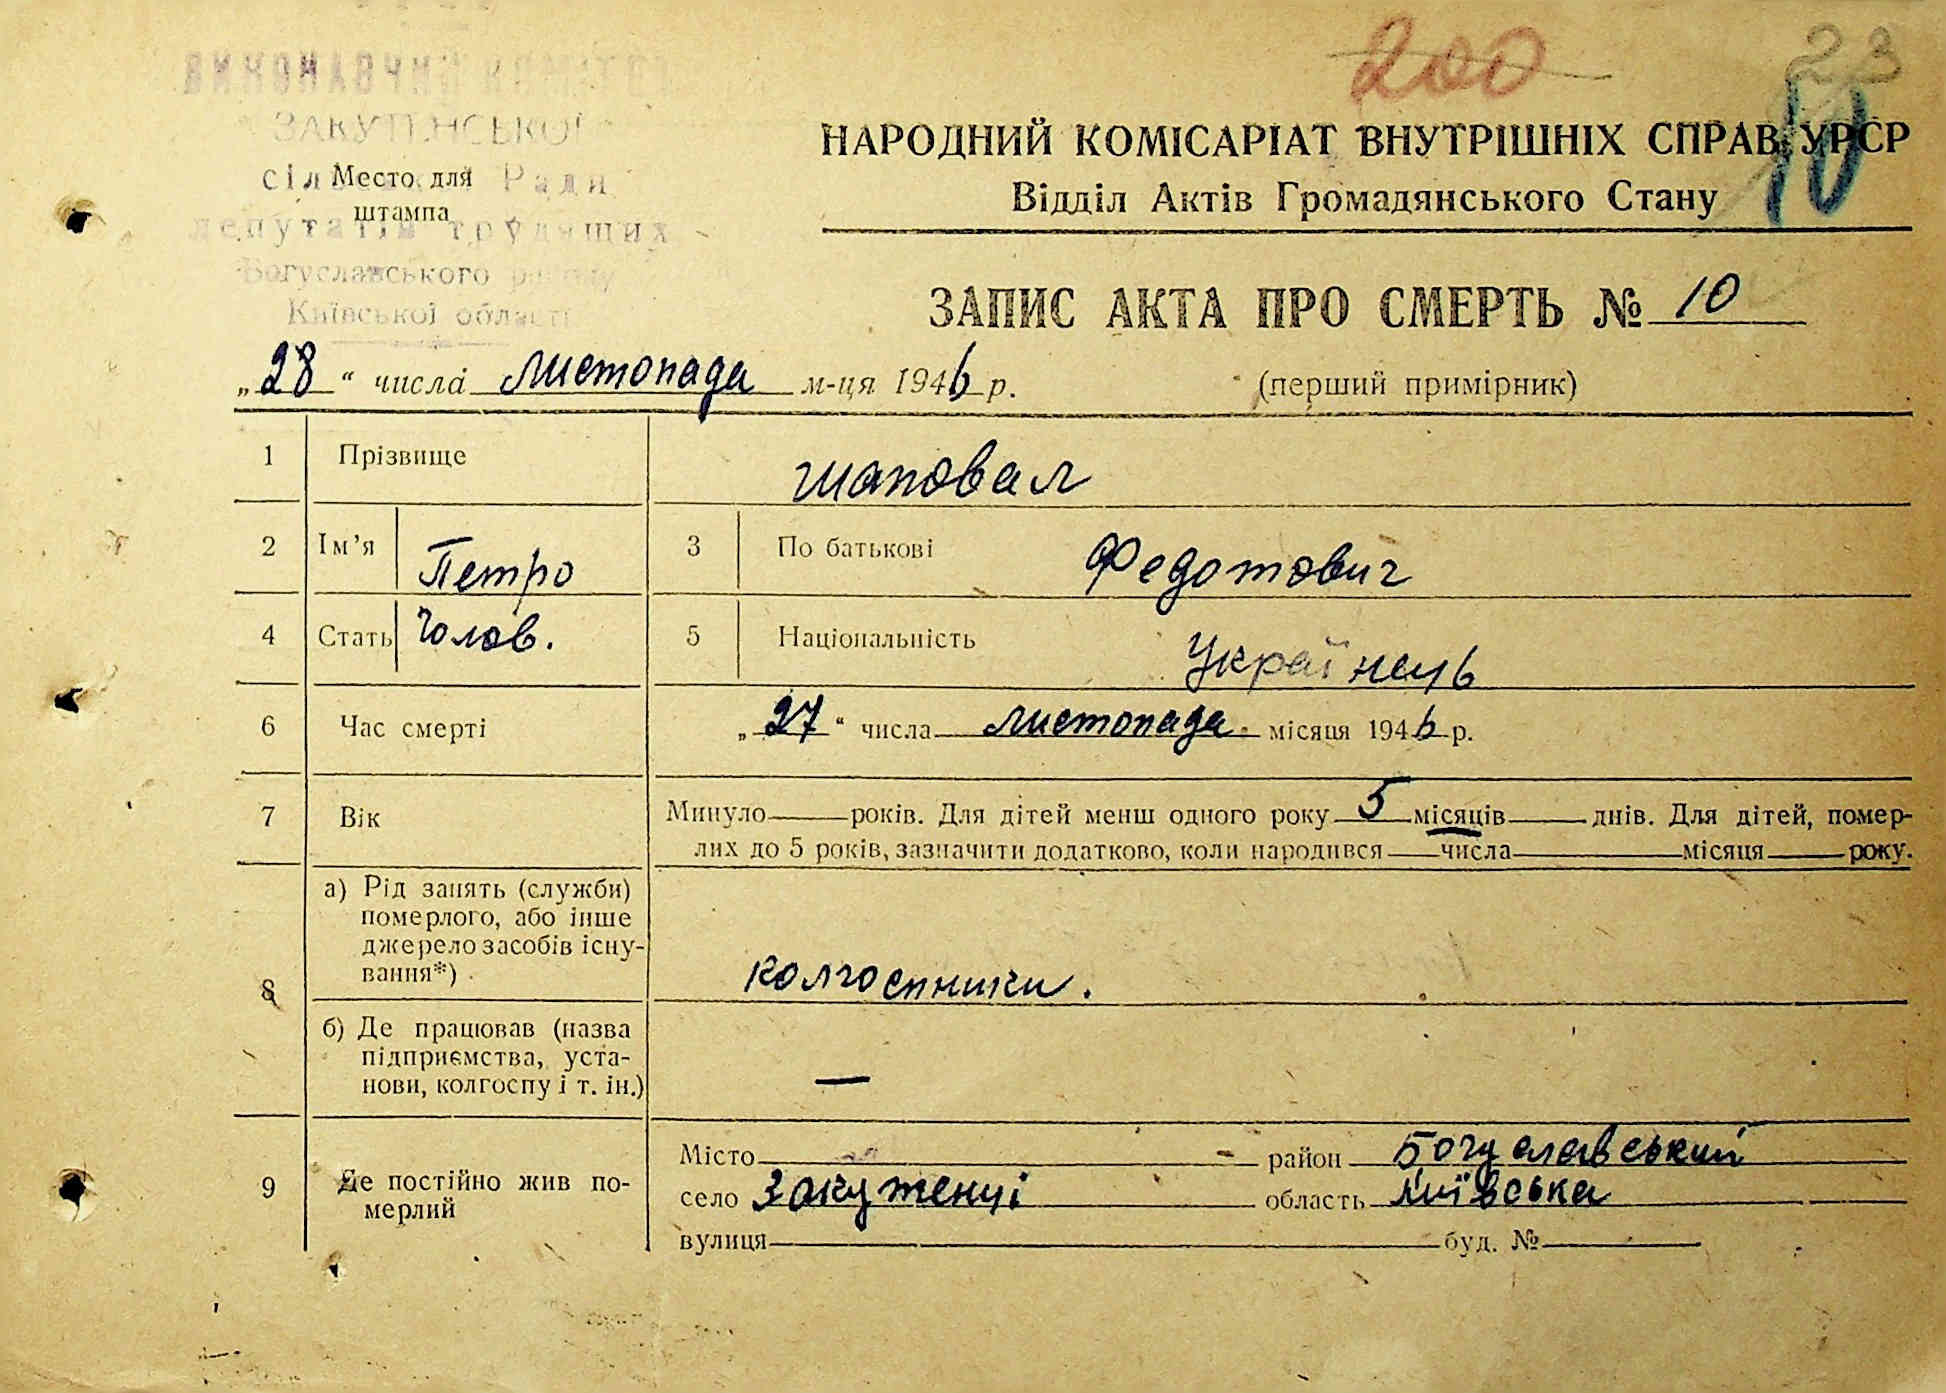 200
23
10
ВИКОНАВЧИЙ КОМІТЕТ
ЗАКУТЕНСЬКОЇ
Ради
депутатів трудящих
Богуславського району
Київської області
Место для
штампа
НАРОДНИЙ КОМІСАРІАТ ВНУТРІШНІХ СПРАВ УРСР
Відділ Актів Громадянського Стану
ЗАПИС АКТА ПРО СМЕРТЬ № 10
„28“ числа листопада м-ця 1946 р. (перший примірник)
1 Прізвище шаповал
2 Ім’я Петро 3 По батькові Федотович
4 Стать Чолов. 5 Національність Українець
6 Час смерті „27“ числа листопада місяця 1946 р.
7 Вік Минуло років. Для дітей менш одного року 5 місяців днів. Для дітей, помер-
лих до 5 років, зазначити додатково, коли народився числа місяця року.
8 а) Рід занять (служби)
померлого, або інше
джерело засобів існу-
вання*)
колгоспники.
б) Де працював (назва
підприємства, уста-
нови, колгоспу і т. ін.)
—
9 Де постійно жив по-
мерлий
Місто - район Богуславський
село Закутенці область Київська
вулиця буд. №